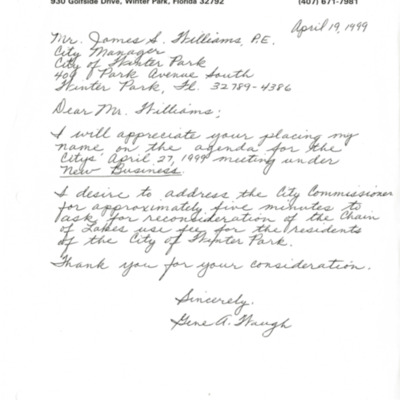 930 Golfside Drive, Winter Park, Florida 32792 (407) 671-7981
April 19, 1999
Mr. James S. Williams, P.E.
City Manager
City of Winter Park
401 Park Avenue South
Winter Park, Fl. 32789-4386
Dear Mr. Williams;
I will appreciate your placing my
name on the agenda for the
Citys' April 27, 1999 meeting under
New Business.
I desire to address the City Commissioner
for approximately five minutes to
ask for reconsideration of the Chain
of Lakes use fee for the residents
of the City of Winter Park.
Thank you for your consideration.
Sincerely.
Gene A. Waugh